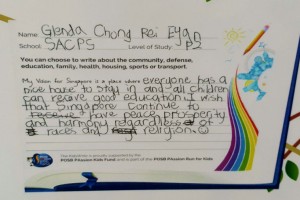 Name: Glenda Chong Rei Eyan
School: SACPS Level of Study: P2
You can choose to write about the community, defense,
education, family, health, housing, sports or transport.
My Vision for Singapore is a place where everyone has a
nice house to stay in and all children
can receive good education. I wish
that Singapore continue to
have peace, prosperity
and harmony regardless of
races and religion.
This initiative is proudly supported by the
POSB PAssion Kids Fund and is part of the POSB PAssion Run for Kids